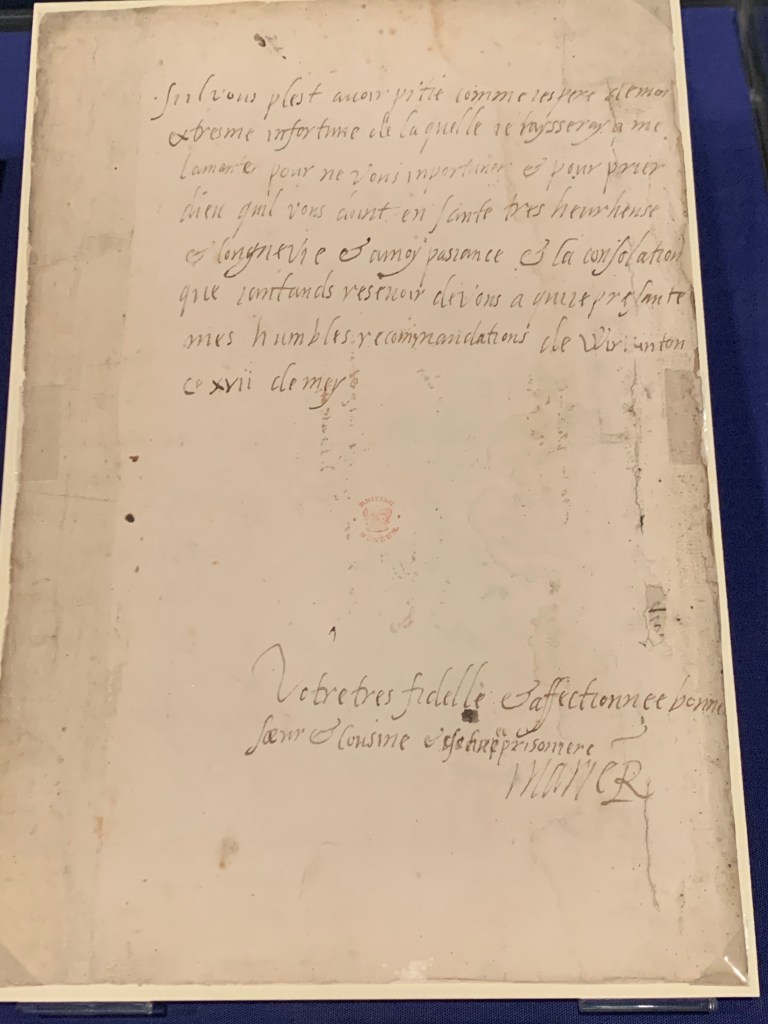 sil vous plest avoir pitie comme iespere de mon
extresme infortune de laquelle ie layssera y a me
lamanter pour ne vous inportuner & pour prier
dieu quil vous doint en sante tres heurheuse
& longue vie & a moy pasiance & la consolation
que iantands resevoir de vous a qui ie presante
mes humbles recommandations de
ce xvii de mey
BRITISH
MUSEUM
Votre tres fidelle & affectionnee bonne
sœur & cousine & prisoniere
Marie R